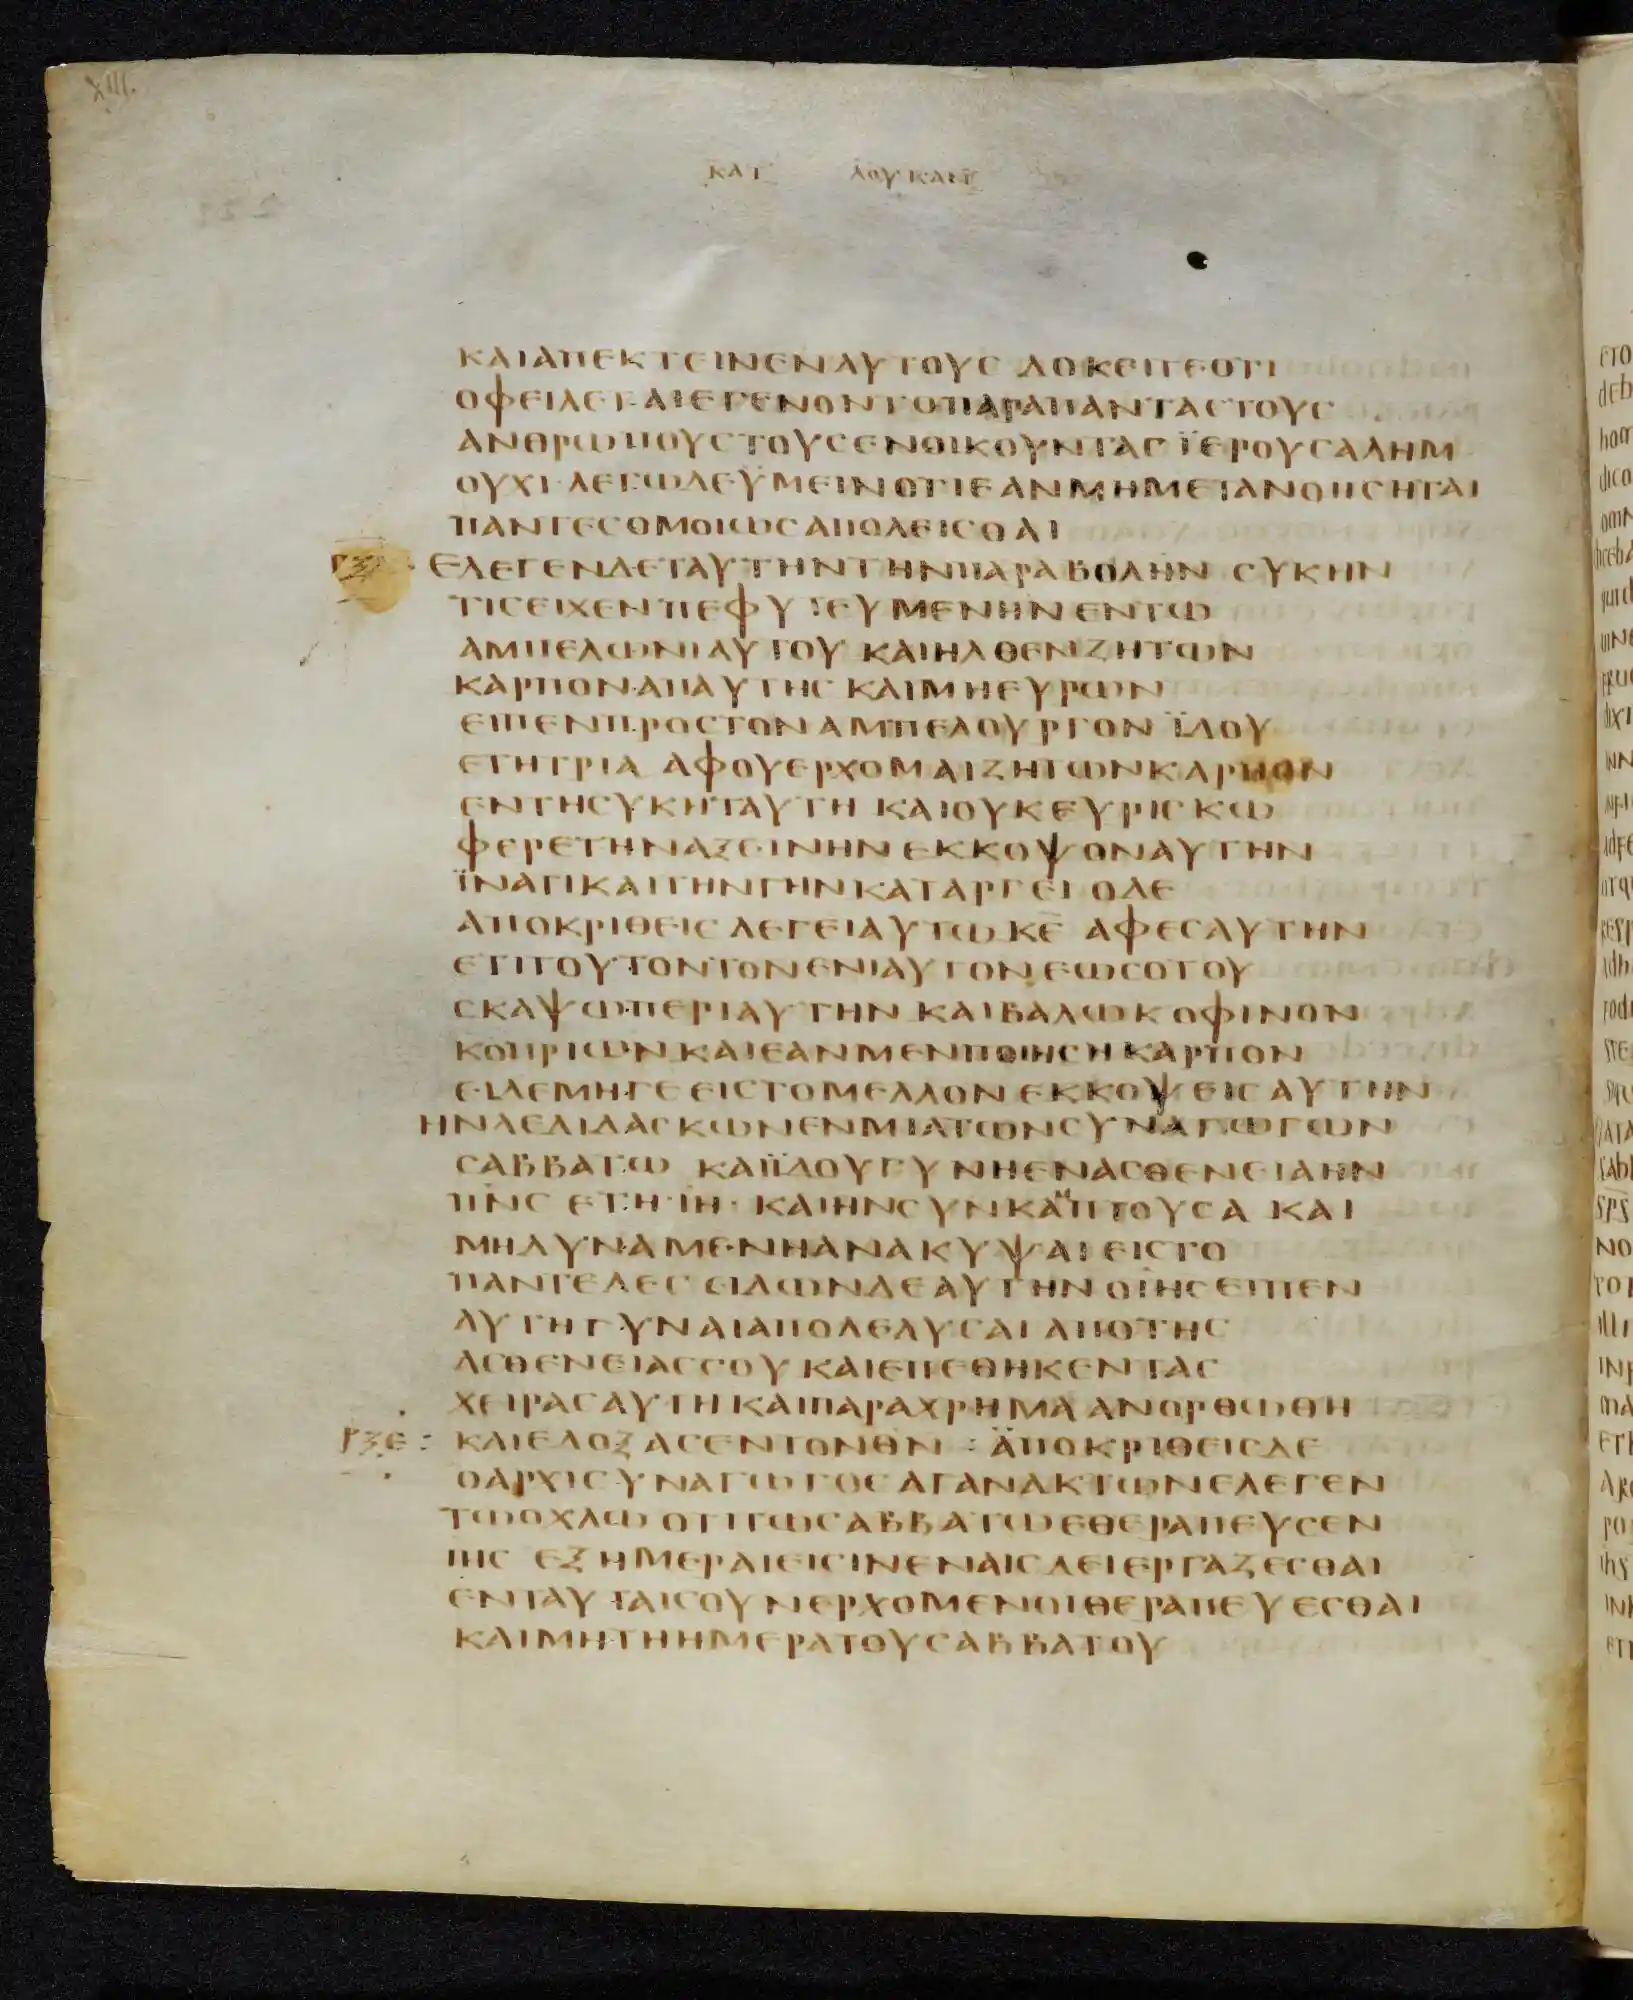 XIII.
ΚΑΤ ΛΟΥΚΑΝ
ΚΑΙΑΠΕΚΤΕΙΝΕΝΑΥΤΟΥΣ ΔΟΚΕΙΤΕΟΤΙ
ΟΦΕΙΛΕΤΑΙΕΓΕΝΟΝΤΟΠΑΡΑΠΑΝΤΑΣΤΟΥΣ
ΑΝΘΡΩΠΟΥΣΤΟΥΣΕΝΟΙΚΟΥΝΤΑΣ ΪΕΡΟΥΣΑΛΗΜ
ΟΥΧΙ ΛΕΓΩΔΕΫΜΕΙΝΟΤΙΕΑΝΜΗΜΕΤΑΝΟΗΣΗΤΑΙ
ΠΑΝΤΕΣΟΜΟΙΩΣΑΠΟΛΕΙΣΘΑΙ
ΡΞΔ ΕΛΕΓΕΝΔΕΤΑΥΤΗΝΤΗΝΠΑΡΑΒΟΛΗΝ ΣΥΚΗΝ
ΤΙΣΕΙΧΕΝΠΕΦΥΤΕΥΜΕΝΗΝ ΕΝΤΩ
ΑΜΠΕΛΩΝΙΑΥΤΟΥ ΚΑΙΗΛΘΕΝΖΗΤΩΝ
ΚΑΡΠΟΝΑΠΑΥΤΗΣ ΚΑΙΜΗΕΥΡΩΝ
ΕΙΠΕΝΠΡΟΣΤΟΝΑΜΠΕΛΟΥΡΓΟΝ ΪΔΟΥ
ΕΤΗΤΡΙΑ ΑΦΟΥΕΡΧΟΜΑΙΖΗΤΩΝΚΑΡΠΟΝ
ΕΝΤΗΣΥΚΗΤΑΥΤΗ ΚΑΙΟΥΚΕΥΡΙΣΚΩ
ΦΕΡΕΤΗΝΑΞΕΙΝΗΝ ΕΚΚΟΨΟΝΑΥΤΗΝ
ΪΝΑΤΙΚΑΙΤΗΝΓΗΝΚΑΤΑΡΓΕΙ ΟΔΕ
ΑΠΟΚΡΙΘΕΙΣ ΛΕΓΕΙΑΥΤΩ ΚΕ̅ ΑΦΕΣΑΥΤΗΝ
ΕΤΙΤΟΥΤΟΝΤΟΝΕΝΙΑΥΤΟΝ ΕΩΣΟΤΟΥ
ΣΚΑΨΩΠΕΡΙΑΥΤΗΝ ΚΑΙΒΑΛΩΚΟΦΙΝΟΝ
ΚΟΠΡΙΩΝ ΚΑΙΕΑΝΜΕΝΠΟΙΗΣΗΚΑΡΠΟΝ
ΕΙΔΕΜΗΓΕ ΕΙΣΤΟΜΕΛΛΟΝ ΕΚΚΟΨΕΙΣ ΑΥΤΗΝ
ΗΝΔΕΔΙΔΑΣΚΩΝΕΝΜΙΑΤΩΝΣΥΝΑΓΩΓΩΝ
ΣΑΒΒΑΤΩ ΚΑΙΪΔΟΥΓΥΝΗΕΝΑΣΘΕΝΕΙΑΗΝ
ΠΝΣ ΕΤΗ·ΙΗ· ΚΑΙΗΝΣΥΝΚΑΜΠΤΟΥΣΑ ΚΑΙ
ΜΗΔΥΝΑΜΕΝΗΑΝΑΚΥΨΑΙ ΕΙΣΤΟ
ΠΑΝΤΕΛΕΣ ΕΙΔΩΝΔΕΑΥΤΗΝΟΙΗΣΕΙΠΕΝ
ΑΥΤΗΓΥΝΑΙΑΠΟΛΕΛΥΣΑΙ ΑΠΟΤΗΣ
ΑΣΘΕΝΕΙΑΣΣΟΥ ΚΑΙΕΠΕΘΗΚΕΝΤΑΣ
ΧΕΙΡΑΣΑΥΤΗΚΑΙΠΑΡΑΧΡΗΜΑ ΑΝΩΡΘΩΘΗ
ΡΞΕ: ΚΑΙΕΔΟΞΑΣΕΝΤΟΝΘΝ : ΑΠΟΚΡΙΘΕΙΣΔΕ
ΟΑΡΧΙΣΥΝΑΓΩΓΟΣΑΓΑΝΑΚΤΩΝΕΛΕΓΕΝ
ΤΩΟΧΛΩ ΟΤΙΤΩΣΑΒΒΑΤΩΕΘΕΡΑΠΕΥΣΕΝ
ΙΗΣ ΕΞΗΜΕΡΑΙΕΙΣΙΝΕΝΑΙΣΔΕΙΕΡΓΑΖΕΣΘΑΙ
ΕΝΤΑΥΤΑΙΣΟΥΝΕΡΧΟΜΕΝΟΙΘΕΡΑΠΕΥΕΣΘΑΙ
ΚΑΙΜΗΤΗΗΜΕΡΑΤΟΥΣΑΒΒΑΤΟΥ